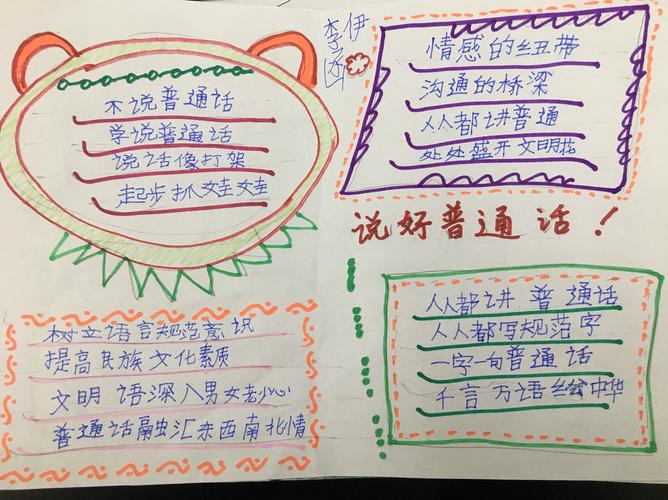 不说普通话
学说普通话
说话像打架
起步抓娃娃
李
伊
情感的纽带
沟通的桥梁
人人都讲普通
处处盛开文明花
说好普通话！
树立语言规范意识
提高民族文化素质
文明语深入男女老少心
普通话融汇东西南北情
人人都讲普通话
人人都写规范字
一字一句普通话
千言万语绘中华